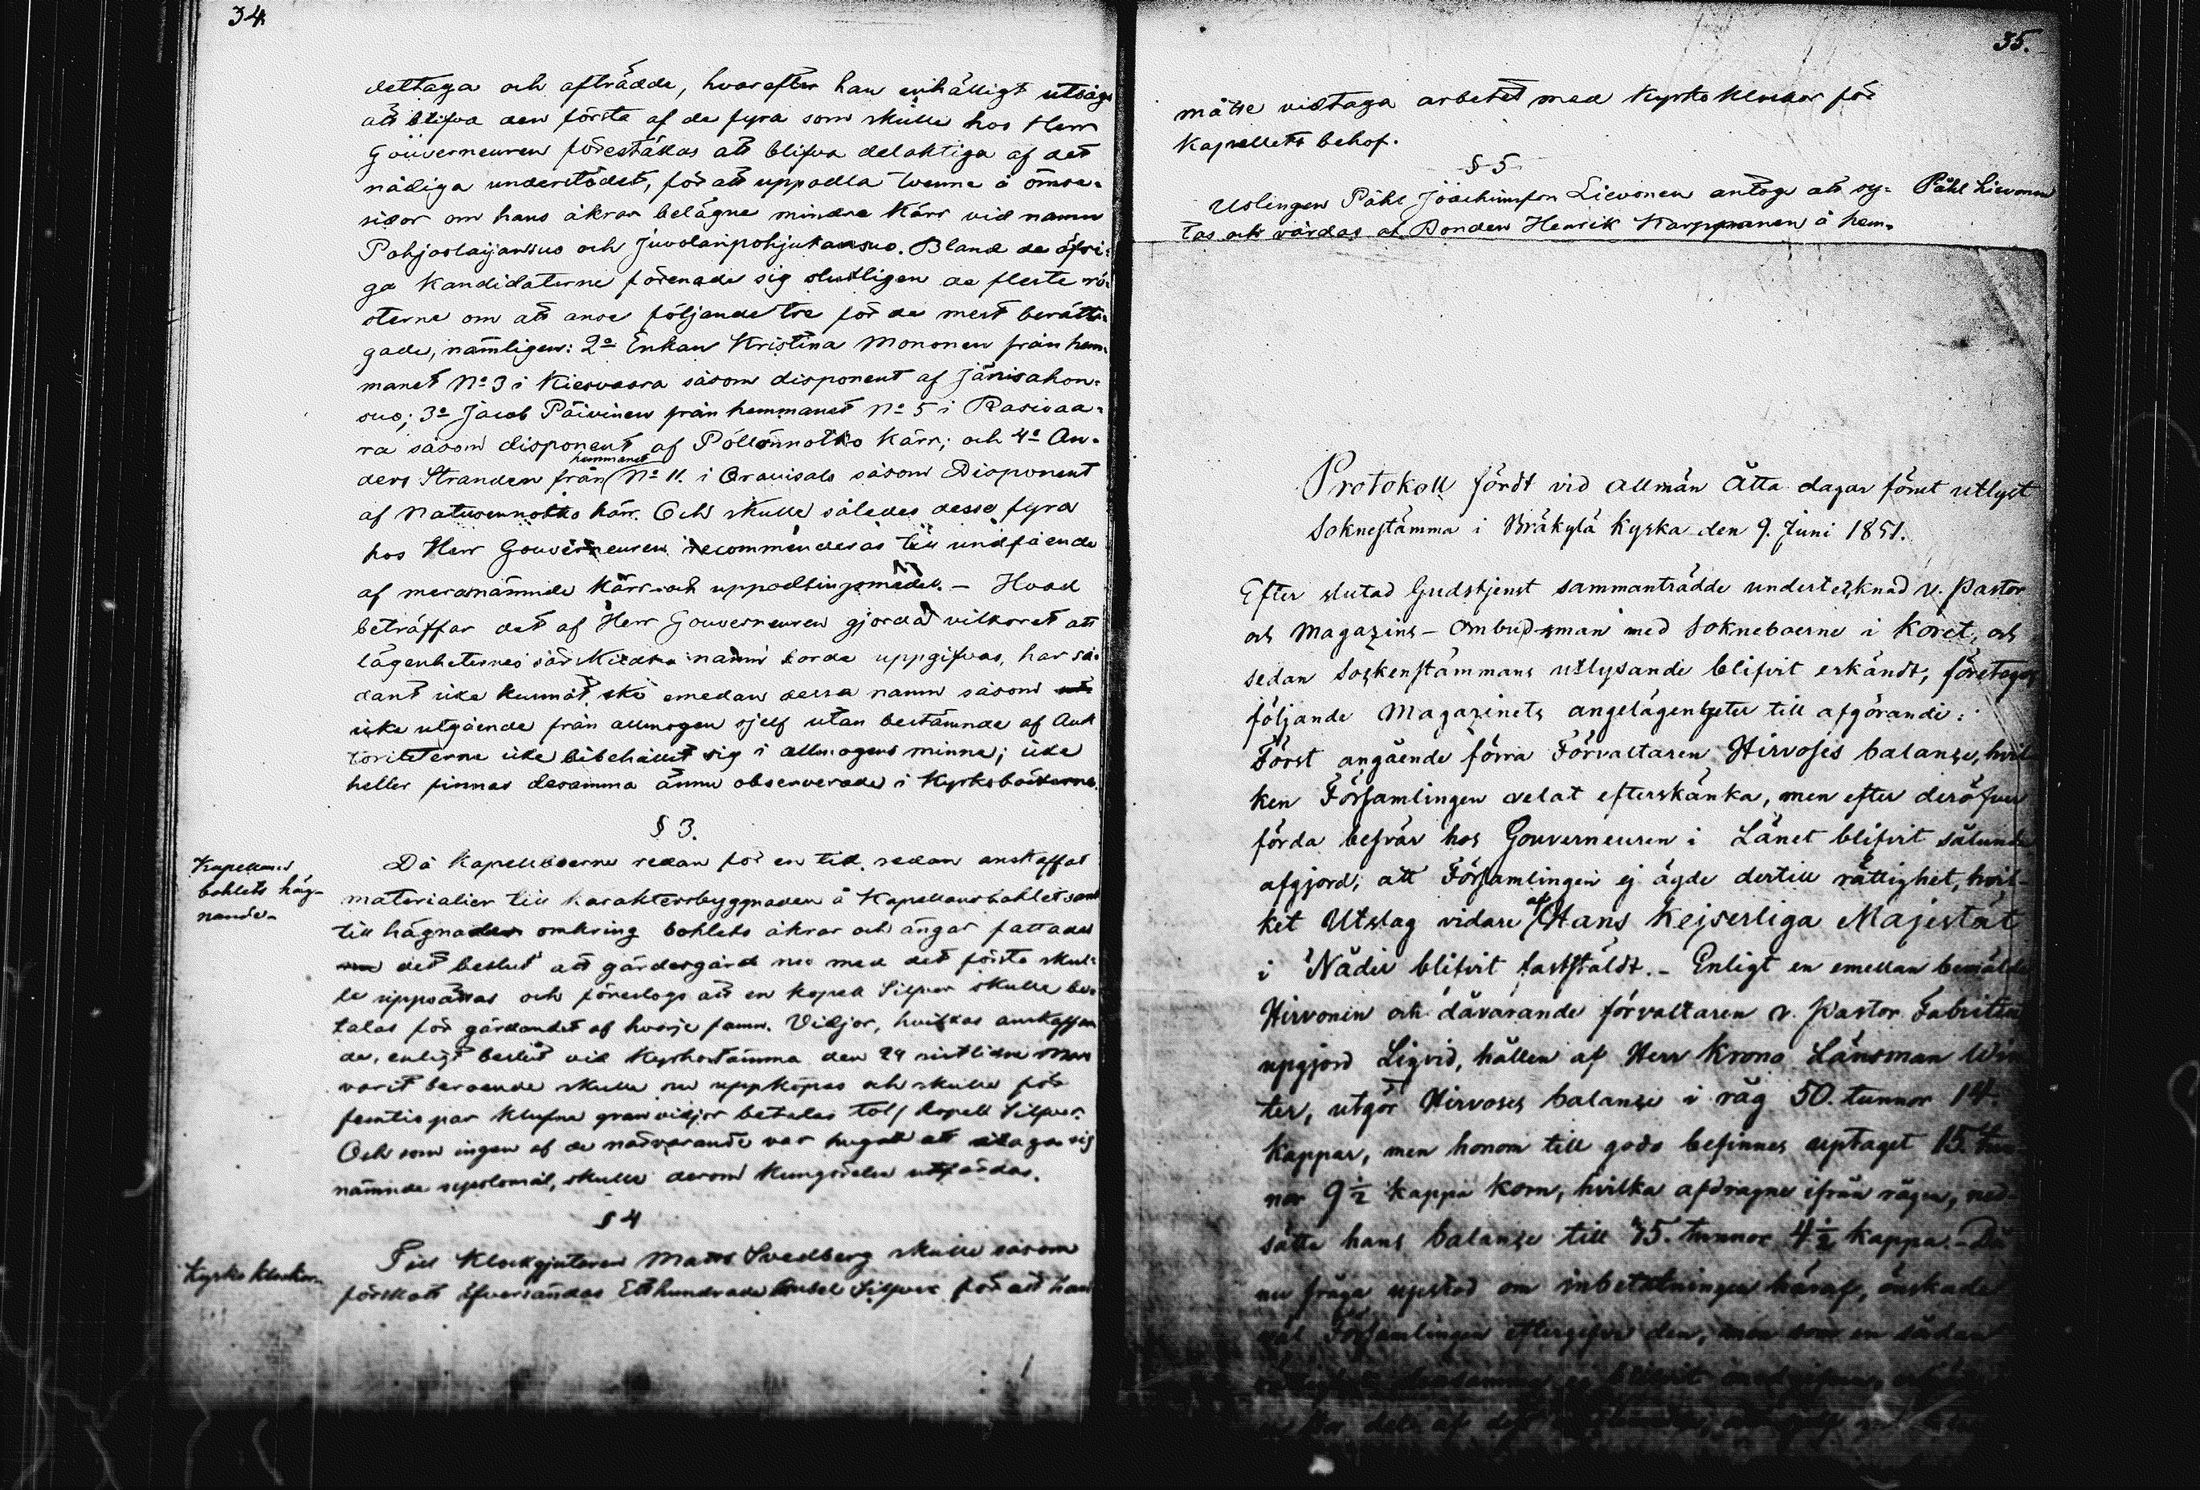 34.
dettaga och afträdde, hvarefter han enhälligt utsågs
att blifva den första af de fyra som skulle hos Herr
Gouverneuren föreställas att blifva delaktiga af det
nådiga understödet, för att uppodla tvenne å ömse-
sidor om hans åkrar belägne mindre kärr vid namn
Pohjoslaijansuo och Juvolanpohjukansuo. Bland de öfri-
ga kandidaterne förenade sig slutligen de fleste rö-
sterne om att anse följande tre för de mest berätti-
gade, nämligen: 2o Enkan Kristina Mononen från hem-
manet No 3 i Kiesvaara såsom disponent af Jänisahon-
suo; 3o Jacob Päivinen från hemmanet No 5 i Rasivaa-
ra såsom disponent af Pöllönnotko kärr; och 4o An-
hemmanet
ders Stranden från No 11. i Oravisalo såsom Disponent
af kärr. Och skulle således desse fyra
hos Herr Gouverneuren recommenderas till undfående
af meranämnde kärr och uppodlingsmedel. – Hvad
beträffar det af Herr Gouverneuren gjorda vilkoret att
lägenheternes namn borde uppgifvas, har så-
dant icke kunnat ske emedan dessa namn såsom
icke utgående från allmogen sjelf utan bestämnde af Auk
toriteterne icke bibehållit sig i allmogens minne; icke
heller finnas desamma ännu observerade i Kyrkoböckerne.
§ 3.
Kapellans
bohlets häg-
nande.
Då kapellboerne redan för en tid sedan anskaffat
materialier till karaktersbyggnaden å Kapellansbohlet samt
till hägnaden omkring bohlets åkrar och ängar fattades
det beslut att gärdesgård nu med det första skul-
le uppsättas och föreslogs att en kopek Silfver skulle be-
talas för gärdandet af hvarje famn. Vidjor, hvilkas anskaffan
de, enligt beslut vid Kyrkostämma den 24 sistlidne
varit beroende skulle nu uppköpas och skulle för
femtio par klufna granvidjor betalas tolf kopek Silfver.
Och som ingen af de närvarande var hugad att åtaga sig
nämnde skulle derom Kungörelse utfärdas.
§ 4
Kyrko klockor.
Till Klockgjutaren Matts Svedberg skulle såsom
förskott öfversändas Ett hundrade Rubel Silfver för att han
35.
måtte vidtaga arbetet med Kyrko klockor för
Kapellets behof.
§ 5
Påhl Lievonen
Uslingen Påhl Joachimsson Lievonen antogs att sy-
tas och vårdas af Bonden Henrik Karppanen å hem-
Protokoll fördt vid allmän Åtta dagar förut utlyst
Soknestämma i Bräkylä kyrka den 9. Juni 1851.
Efter slutad Gudstjenst sammanträdde undertecknad v. Pastor
och Magazins-ombudsman med Sokneboerne i koret, och
sedan Sockenstämmans utlysande blifvit erkändt, företogos
följande Magazinets angelägenheter till afgörande:
Först angående förra Förvaltaren Hirvoses balance, hvil-
ken Församlingen velat efterskänka, men efter deröfver
förda besvär hos Gouverneuren i Länet blifvit sålunda
afgjord; att Församlingen ej ägde dertill rättighet, hvil-
af
ket Utslag vidare Hans Kejserliga Majestät
i Nåder blifvit fastställdt. – Enligt en emellan bemälde
Hirvonen och dåvarande förvaltaren v. Pastor Fabritius
upgjord Liqvid, hållen af Herr Krono Länsman Win
ter, utgör Hirvoses balance i råg 50. tunnor 14.
kappar, men honom till godo befinnes uptaget 15. tun-
nor 9 1/2 kappa korn, hvilka afdragne ifrån rågen, ned-
sätta hans balance till 35. tunnor 4 1/2 kappa. – Då
nu fråga upstod om inbetalningen häraf, önskade
väl Församlingen eftergifva den, men som en sådan